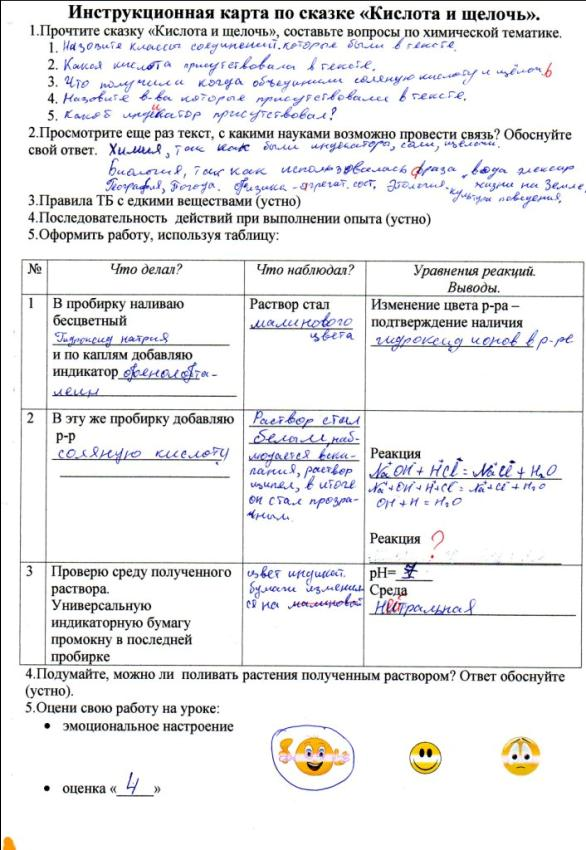 Инструкционная карта по сказке «Кислота и щелочь».
1.Прочтите сказку «Кислота и щелочь», составьте вопросы по химической тематике.
1. Назовите классы соединений, которые были в тексте.
2. Какая кислота присутствовала в тексте.
3. Что получили когда объединили соляную кислоту и щёлочь
4. Назовите в-ва которые присутствовали в тексте.
5. Какой индикатор присутствовал?
2.Просмотрите еще раз текст, с какими науками возможно провести связь? Обоснуйте
свой ответ. Химия, так как были индикатора, соли, щелочи.
Биология, так как использовалась фраза вода элексир
География, Погода. Физика - агрегат. сост. Этология - культура поведения. жизни на Земле,
3.Правила ТБ с едкими веществами (устно)
4.Последовательность действий при выполнении опыта (устно)
5.Оформить работу, используя таблицу:
№ Что делал? Что наблюдал? Уравнения реакций.
Выводы.
1 В пробирку наливаю
бесцветный
Гидроксид натрия
и по каплям добавляю
индикатор фенолфта-
леин
Раствор стал
малинового
цвета
Изменение цвета р-ра –
подтверждение наличия
гидроксид ионов в р-ре
2 В эту же пробирку добавляю
р-р
соляную кислоту
Раствор стал
белым, наб-
людается вски-
пания, раствор
шипел, в итоге
он стал прозра-
чным.
Реакция
NaOH + HCl = NaCl + H₂O
Na⁺+OH⁻+H⁺+Cl⁻ = Na⁺+Cl⁻ + H₂O
OH + H = H₂O
Реакция ?
3 Проверю среду полученного
раствора.
Универсальную
индикаторную бумагу
промокну в последней
пробирке
цвет индикат.
бумаги изменил
ся на малиновый
рН= 7
Среда
Нейтральная
4.Подумайте, можно ли поливать растения полученным раствором? Ответ обоснуйте
(устно).
5.Оцени свою работу на уроке:
• эмоциональное настроение
• оценка « 4 »